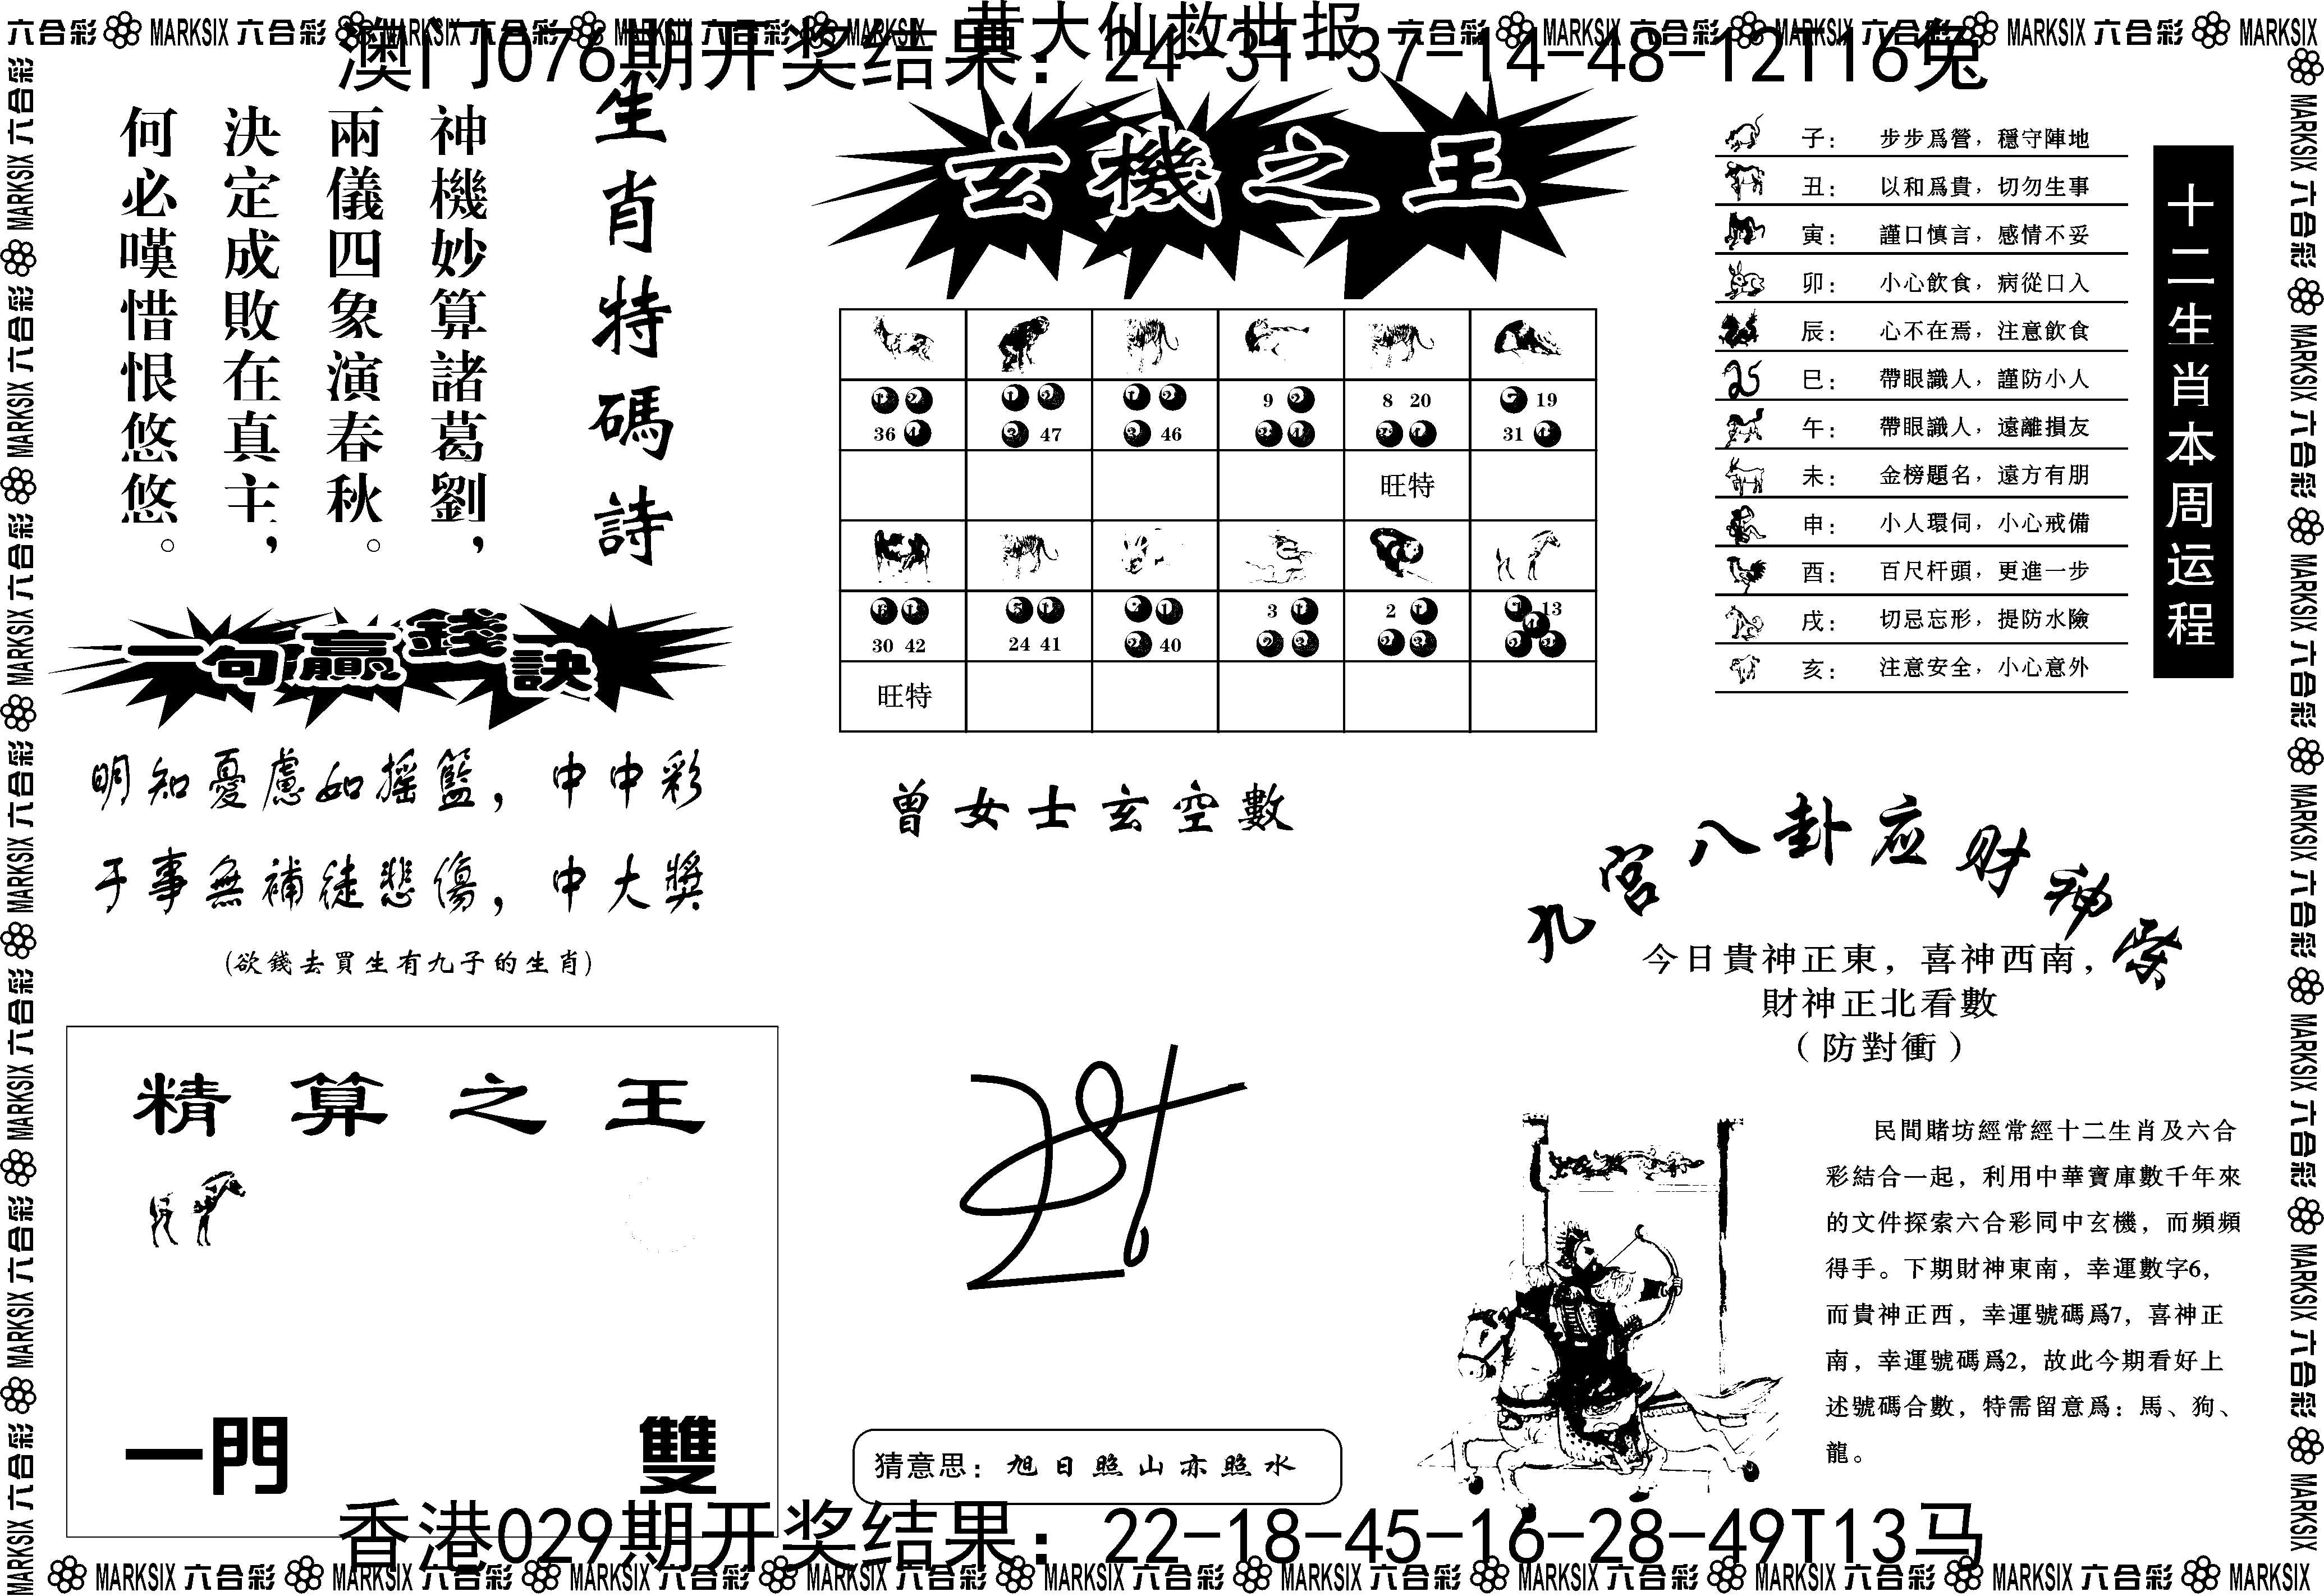 黄大仙救世报
澳门076期开奖结果：24-31-37-14-48-12T16兔
六合彩 MARKSIX 六合彩 MARKSIX 六合彩 MARKSIX
生肖特碼詩
神機妙算諸葛劉，
兩儀四象演春秋。
決定成敗在真主，
何必嘆惜恨悠悠。
一句贏錢訣
明知憂慮如摇籃，中中彩
于事無補徒悲傷，中大獎
(欲錢去買生有九子的生肖)
精算之王
一門 雙
玄機之王
36
47
46
9
8 20
19
31
旺特
30 42
24 41
40
3
2
13
旺特
曾女士玄空數
猜意思：旭日照山亦照水
十二生肖本周运程
子：步步爲營，穩守陣地
丑：以和爲貴，切勿生事
寅：謹口慎言，感情不妥
卯：小心飲食，病從口入
辰：心不在焉，注意飲食
巳：帶眼識人，謹防小人
午：帶眼識人，遠離損友
未：金榜題名，遠方有朋
申：小人環伺，小心戒備
酉：百尺杆頭，更進一步
戌：切忌忘形，提防水險
亥：注意安全，小心意外
九宫八卦应财神
今日貴神正東，喜神西南，
財神正北看數
（防對衝）
民間賭坊經常經十二生肖及六合
彩結合一起，利用中華寶庫數千年來
的文件探索六合彩同中玄機，而頻頻
得手。下期財神東南，幸運數字6，
而貴神正西，幸運號碼爲7，喜神正
南，幸運號碼爲2，故此今期看好上
述號碼合數，特需留意爲：馬、狗、
龍。
香港029期开奖结果：22-18-45-16-28-49T13马
MARKSIX 六合彩 MARKSIX 六合彩 MARKSIX 六合彩 MARKSIX